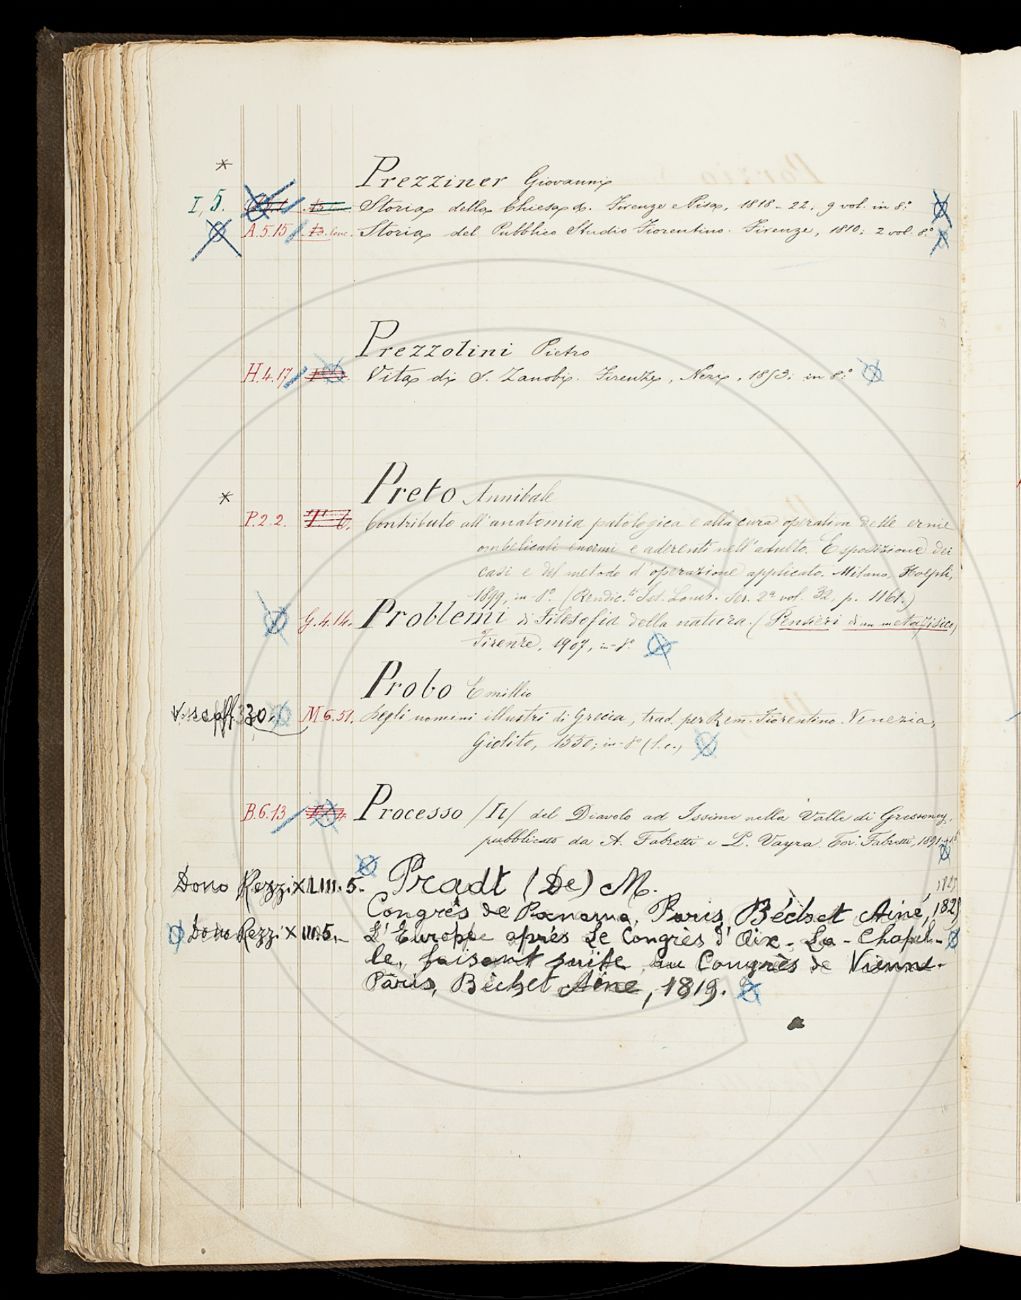 *
Prezziner Giovanni
I, 5. Storia della Chiesa &. Firenze e Pisa, 1818-22; 9 vol. in 8.°
A.5.15 Storia del Pubblico Studio Fiorentino. Firenze, 1810; 2 vol. 8.°
Prezzolini Pietro
H.4.17 Vita di S. Zanobi. Firenze, Neri, 1853; in 8.°
Preto Annibale
*
P.2.2. Contributo all'anatomia patologica e alla cura operativa delle ernie
ombelicali enormi e aderenti nell'adulto. Esposizione dei
casi e del metodo d'operazione applicato. Milano, Hoepli,
1899, in-8°. (Rendic.ti Ist. Lomb. Ser. 2a vol. 32, p. 1161.)
G.4.14. Problemi di Filosofia della natura. (Pensieri di un metafisico)
Firenze, 1907, in-8°
Probo Emilio
330. M.6.51. Degli uomini illustri di Grecia, trad. per Rem. Fiorentino. Venezia,
Giolito, 1550; in-8° (l.c.)
B.6.13 Processo /Il/ del Diavolo ad Issime nella Valle di Gressoney,
pubblicato da A. Fabretti e P. Vayra. Tor. Fabretti, 1891
Dono Rezzi XLIII.5. Pradt (De) M.
Congrès de Panama. Paris, Béchet Ainé, 1825
Dono Rezz. X III.5. L'Europpe aprés Le Congrès d'Aix-La-Chapel-
le, faisant suite au Congrès de Vienne.
Paris, Bèchet Aine, 1819.